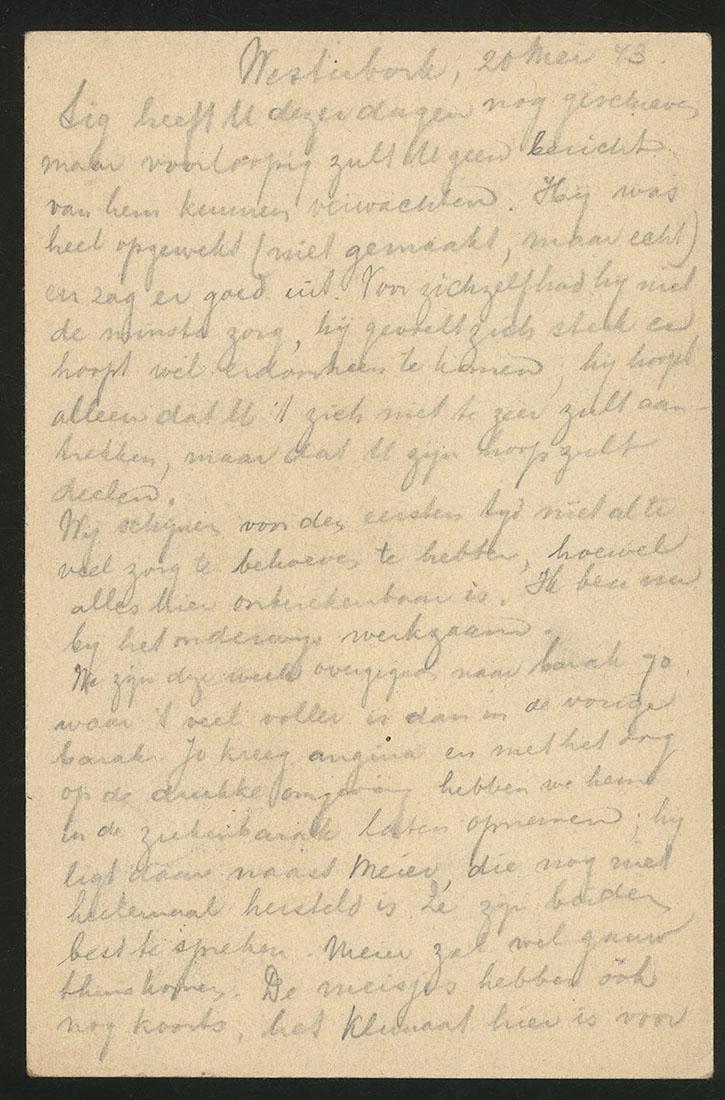 Westerbork, 20 Mei '43.
Sig heeft U dezer dagen nog geschreven
maar voorloopig zult U geen bericht
van hem kunnen verwachten. Hij was
heel opgewekt (niet gemaakt, maar echt)
en zag er goed uit. Voor zichzelf had hij niet
de minste zorg, hij gevoelt zich sterk en
hoopt wel er doorheen te komen; hij hoopt
alleen dat U 't zich niet te zeer zult aan-
trekken, maar dat U zijn hoop zult
deelen.
Wij schijnen voor den eersten tijd niet al te
veel zorg te behoeven te hebben, hoewel
alles hier onberekenbaar is. Ik ben nu
bij het onderwijs werkzaam.
We zijn deze week overgegaan naar barak 70,
waar 't veel voller is dan in de vorige
barak. Jo kreeg angina en met het oog
op de drukke omgeving hebben we hem
in de ziekenbarak laten opnemen; hij
ligt daar naast Meier, die nog niet
heelemaal hersteld is. Ze zijn beiden
best te spreken. Meier zal wel gauw
thuiskomen. De meisjes hebben ook
nog koorts, het klimaat hier is voor